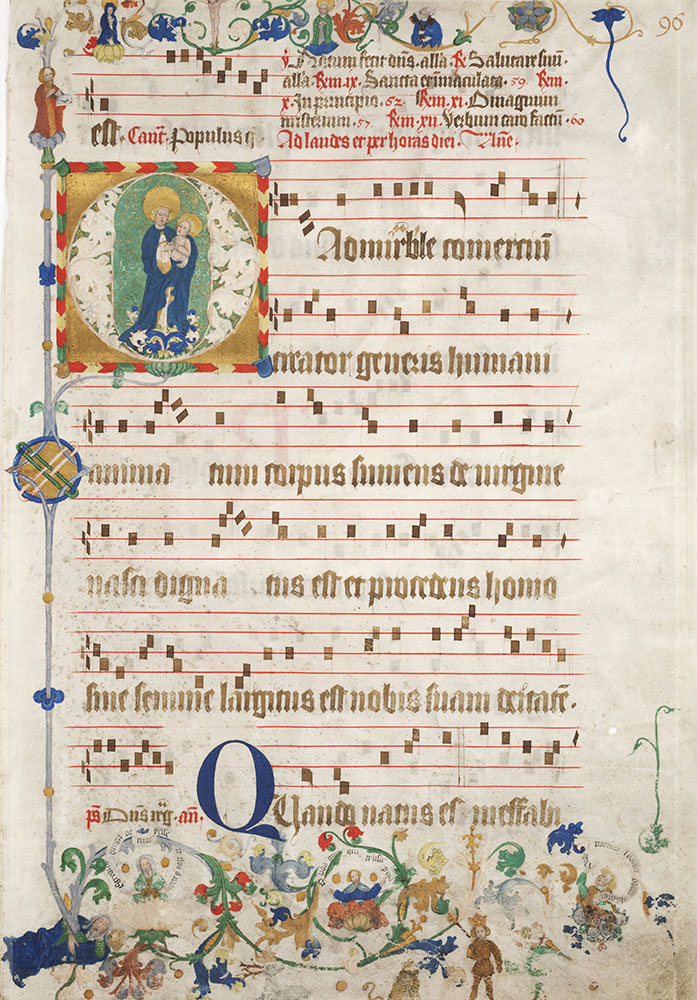 96
℣ Notum fecit dns. alla ℟ Salutare suu.
alla Rem. ix. Sancta et immaculata. 59. Rem.
x. In principio. 62. Rem. xi. O magnum
misterium. 57. Rem. xii. Verbum caro factu. 60
est. Cant. Populus q Ad laudes et per horas diei. Ane.
O Admirabile comerciu
creator generis humani
anima tum corpus sumens de virgine
nasci digna tus est et procedens homo
sine semine largitus est nobis suam deitate.
ps Dns reg. an. Quando natus es ineffabi